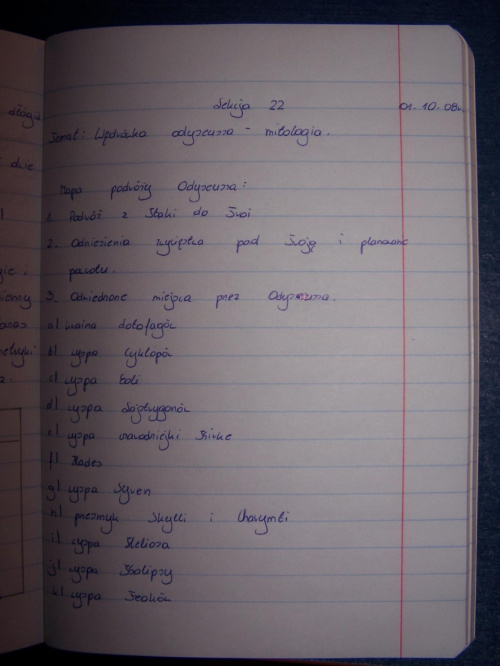 Lekcja 22 01.10.08r.
Temat: Wędrówka odyseusza - mitologia.
Mapa podróży Odyseusza:
1. Podróż z Itaki do Troi
2. Odniesienia zwycięstwa pod Troją i planowane
powrotu.
3. Odwiedzone miejsca przez Odyseusza.
a) kraina Lotofagów
b) wyspa Cyklopów
c) wyspa Eoli
d) wyspa Lajstrygonów
e) wyspa czarodziejki Kirke
f) Hades
g) wyspa Syren
h) przesmyk Skylli i Charybdi
i) wyspa Heliosa
j) wyspa Kalipsy
k) wyspa Feaków